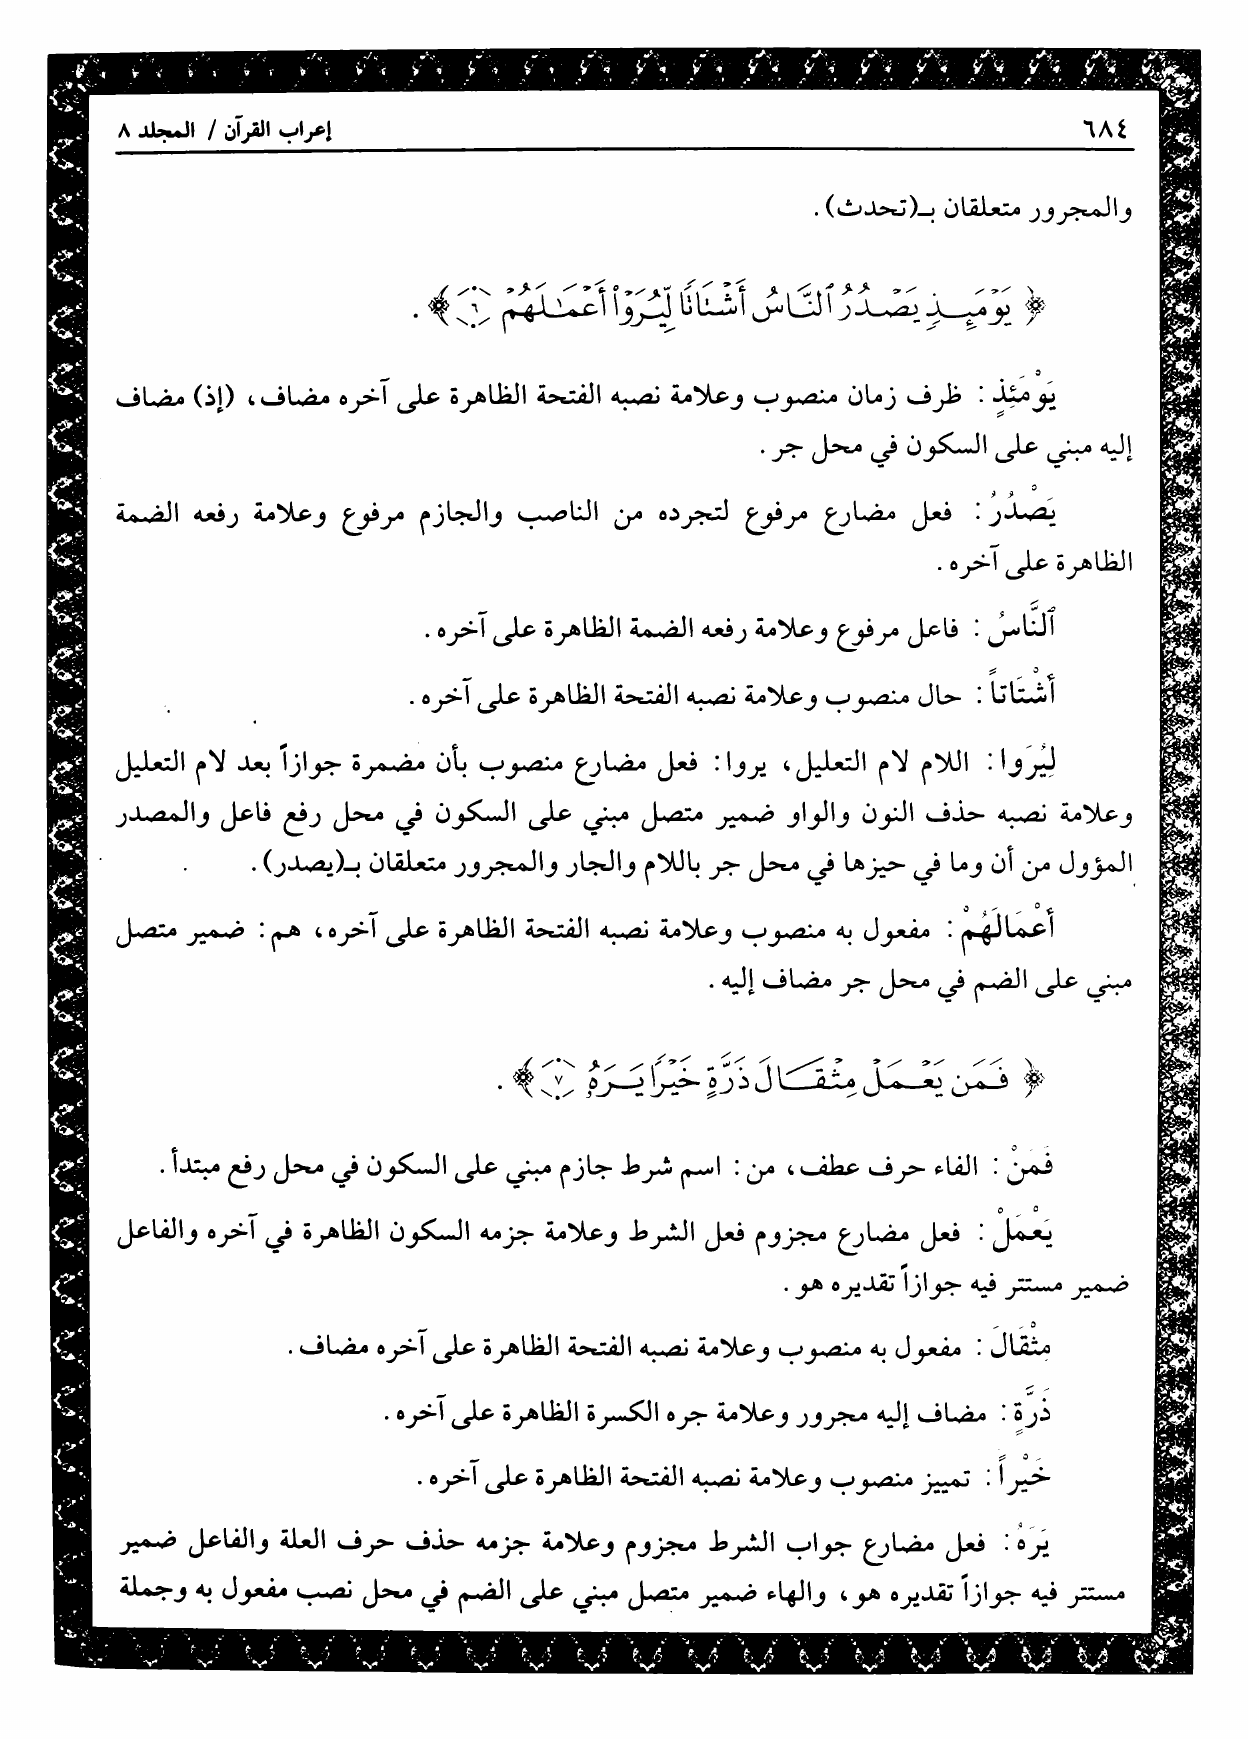 ٦٨٤
إعراب القرآن / المجلد ٨
والمجرور متعلقان بـ(تحدث).
﴿ يَوْمَئِذٍ يَصْدُرُ ٱلنَّاسُ أَشْتَاتًا لِّيُرَوْا۟ أَعْمَـٰلَهُمْ ٦ ﴾.
يَوْمَئِذٍ : ظرف زمان منصوب وعلامة نصبه الفتحة الظاهرة على آخره مضاف، (إذ) مضاف
إليه مبني على السكون في محل جر.
يَصْدُرُ : فعل مضارع مرفوع لتجرده من الناصب والجازم مرفوع وعلامة رفعه الضمة
الظاهرة على آخره.
ٱلنَّاسُ : فاعل مرفوع وعلامة رفعه الضمة الظاهرة على آخره.
أَشْتَاتاً : حال منصوب وعلامة نصبه الفتحة الظاهرة على آخره.
لِيُرَوا : اللام لام التعليل، يروا: فعل مضارع منصوب بأن مضمرة جوازاً بعد لام التعليل
وعلامة نصبه حذف النون والواو ضمير متصل مبني على السكون في محل رفع فاعل والمصدر
المؤول من أن وما في حيزها في محل جر باللام والجار والمجرور متعلقان بـ(يصدر).
أَعْمَالَهُمْ : مفعول به منصوب وعلامة نصبه الفتحة الظاهرة على آخره، هم: ضمير متصل
مبني على الضم في محل جر مضاف إليه.
﴿ فَمَن يَعْمَلْ مِثْقَالَ ذَرَّةٍ خَيْرًا يَرَهُۥ ٧ ﴾.
فَمَنْ : الفاء حرف عطف، من: اسم شرط جازم مبني على السكون في محل رفع مبتدأ.
يَعْمَلْ : فعل مضارع مجزوم فعل الشرط وعلامة جزمه السكون الظاهرة في آخره والفاعل
ضمير مستتر فيه جوازاً تقديره هو.
مِثْقَالَ : مفعول به منصوب وعلامة نصبه الفتحة الظاهرة على آخره مضاف.
ذَرَّةٍ : مضاف إليه مجرور وعلامة جره الكسرة الظاهرة على آخره.
خَيْراً : تمييز منصوب وعلامة نصبه الفتحة الظاهرة على آخره.
يَرَهُ : فعل مضارع جواب الشرط مجزوم وعلامة جزمه حذف حرف العلة والفاعل ضمير
مستتر فيه جوازاً تقديره هو، والهاء ضمير متصل مبني على الضم في محل نصب مفعول به وجملة